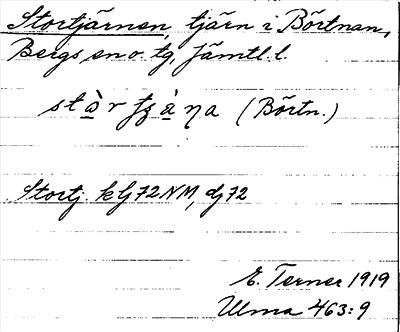 Stortjärnen, tjärn i Börtnan,
Bergs sn o. tg, Jämtl. l.
(Börtn.)
Stortj. klj 72 NM, dj 72
E. Terner 1919
Ulma 463:9